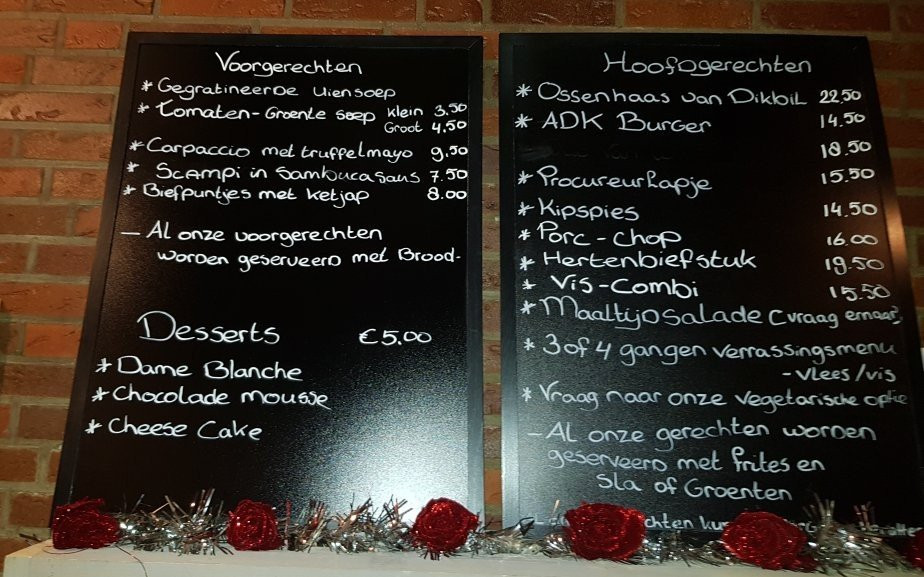 Voorgerechten
* Gegratineerde Uiensoep
* Tomaten-Groente soep klein 3,50
Groot 4,50
* Carpaccio met truffelmayo 9,50
* Scampi in Sambucasaus 7.50
* Biefpuntjes met ketjap 8.00
- Al onze voorgerechten
worden geserveerd met Brood.
Desserts €5,00
* Dame Blanche
* Chocolade mousse
* Cheese Cake
Hoofdgerechten
* Ossenhaas van Dikbil 22,50
* ADK Burger 14.50
18.50
* Procureurhapje 15.50
* Kipspies 14.50
* Porc-chop 16.00
* Hertenbiefstuk 19.50
* Vis-Combi 15.50
* Maaltijdsalade (vraag ernaar)
* 3 of 4 gangen verrassingsmenu
- vlees/vis
* Vraag naar onze vegetarische optie
- Al onze gerechten worden
geserveerd met frites en
Sla of Groenten